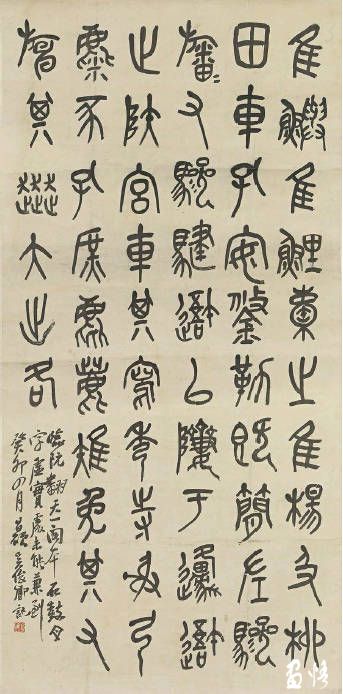 隹鱮隹鯉橐之隹楊及柳
田車孔安鋚勒既簡左驂
旛=又驂騝䢃以隮于邍䢃
止陕宮車其寫秀寺射弓
麋豕孔庶麀鹿雉兔其又
旃其大出各
臨阮翻天一閣本石鼓文
字虛實處未能兼到
癸卯四月昌碩吳俊卿記